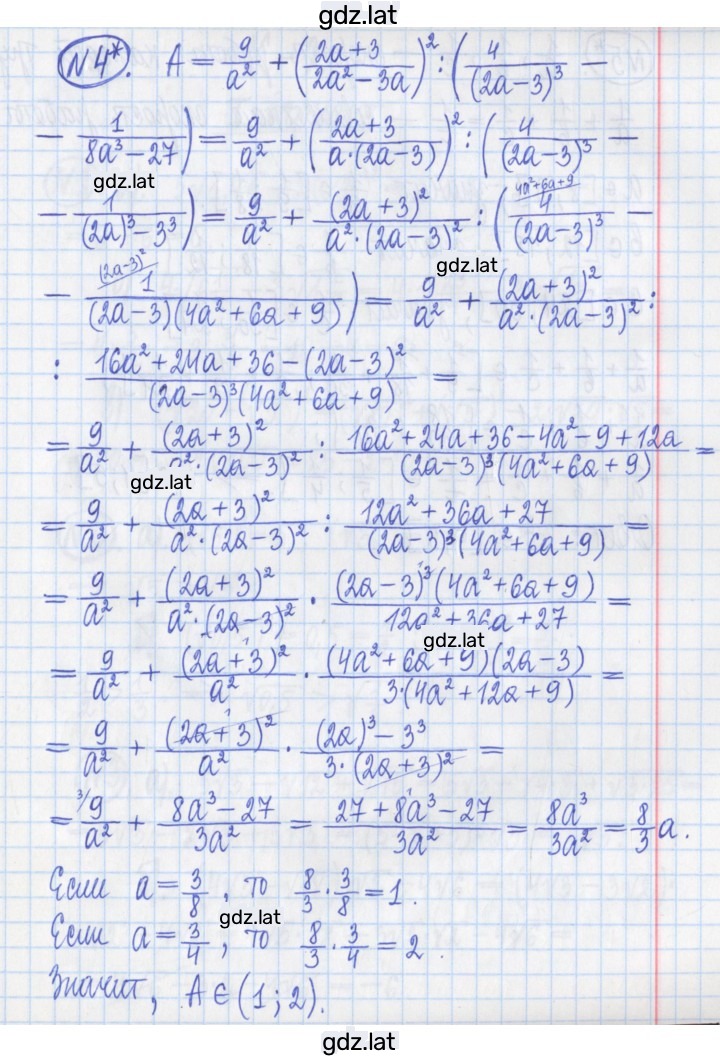 gdz.lat
N4*. A = 9/a² + ((2a+3)/(2a²−3a))² : (4/(2a−3)³ −
− 1/(8a³−27)) = 9/a² + ((2a+3)/(a·(2a−3)))² : (4/(2a−3)³ −
gdz.lat
− 1/((2a)³−3³)) = 9/a² + (2a+3)²/(a²·(2a−3)²) : (4^(4a²+6a+9)/(2a−3)³ −
gdz.lat
− 1^((2a−3)²)/((2a−3)(4a²+6a+9))) = 9/a² + (2a+3)²/(a²·(2a−3)²) :
: (16a²+24a+36−(2a−3)²)/((2a−3)³(4a²+6a+9)) =
= 9/a² + (2a+3)²/(a²·(2a−3)²) : (16a²+24a+36−4a²−9+12a)/((2a−3)³(4a²+6a+9)) =
gdz.lat
= 9/a² + (2a+3)²/(a²·(2a−3)²) : (12a²+36a+27)/((2a−3)³(4a²+6a+9)) =
= 9/a² + (2a+3)²/(a²·(2a−3)²) · ((2a−3)³(4a²+6a+9))/(12a²+36a+27) =
gdz.lat
= 9/a² + (2a+3)²/a² · ((4a²+6a+9)(2a−3))/(3·(4a²+12a+9)) =
= 9/a² + (2a+3)²/a² · ((2a)³−3³)/(3·(2a+3)²) =
= ³⁄9/a² + (8a³−27)/3a² = (27+8a³−27)/3a² = 8a³/3a² = 8/3 a.
Если a = 3/8, то 8/3 · 3/8 = 1.
gdz.lat
Если a = 3/4, то 8/3 · 3/4 = 2.
Значит, A ∈ (1; 2).
gdz.lat